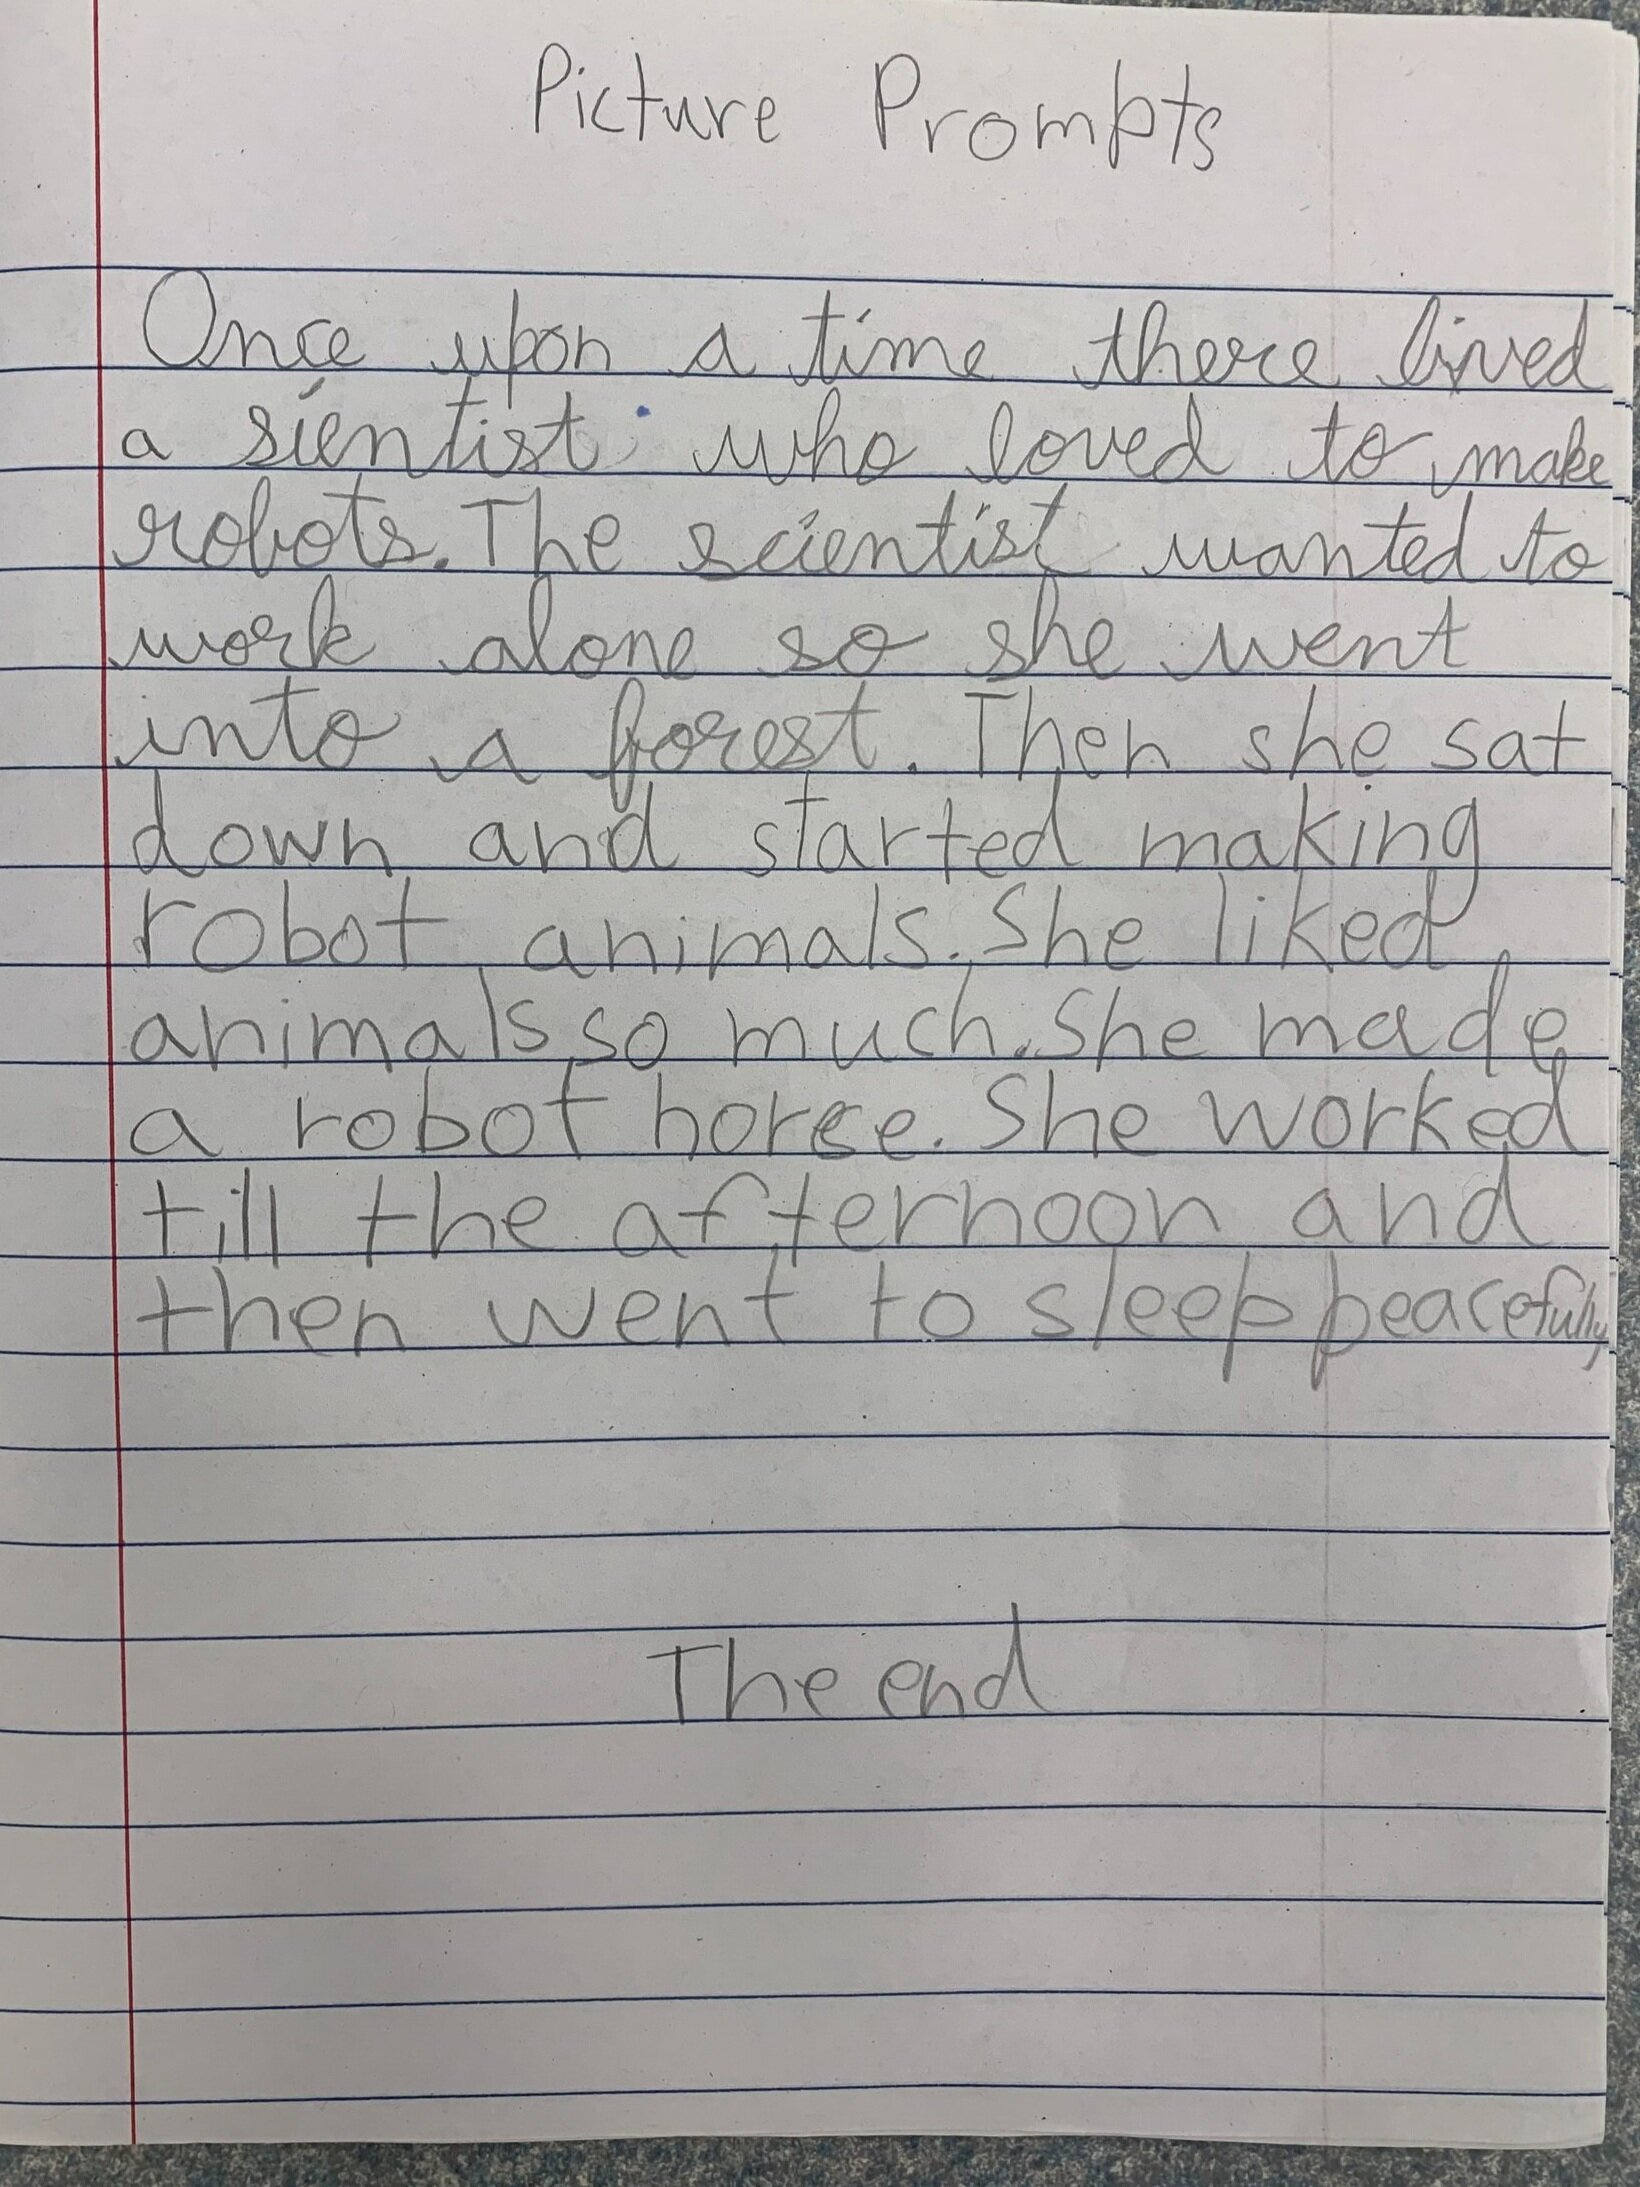 Picture Prompts
Once upon a time there lived
a sientist who loved to make
robots. The scientist wanted to
work alone so she went
into a forest. Then she sat
down and started making
robot animals. She liked
animals so much. She made
a robot horse. She worked
till the afternoon and
then went to sleep peacefully
The end